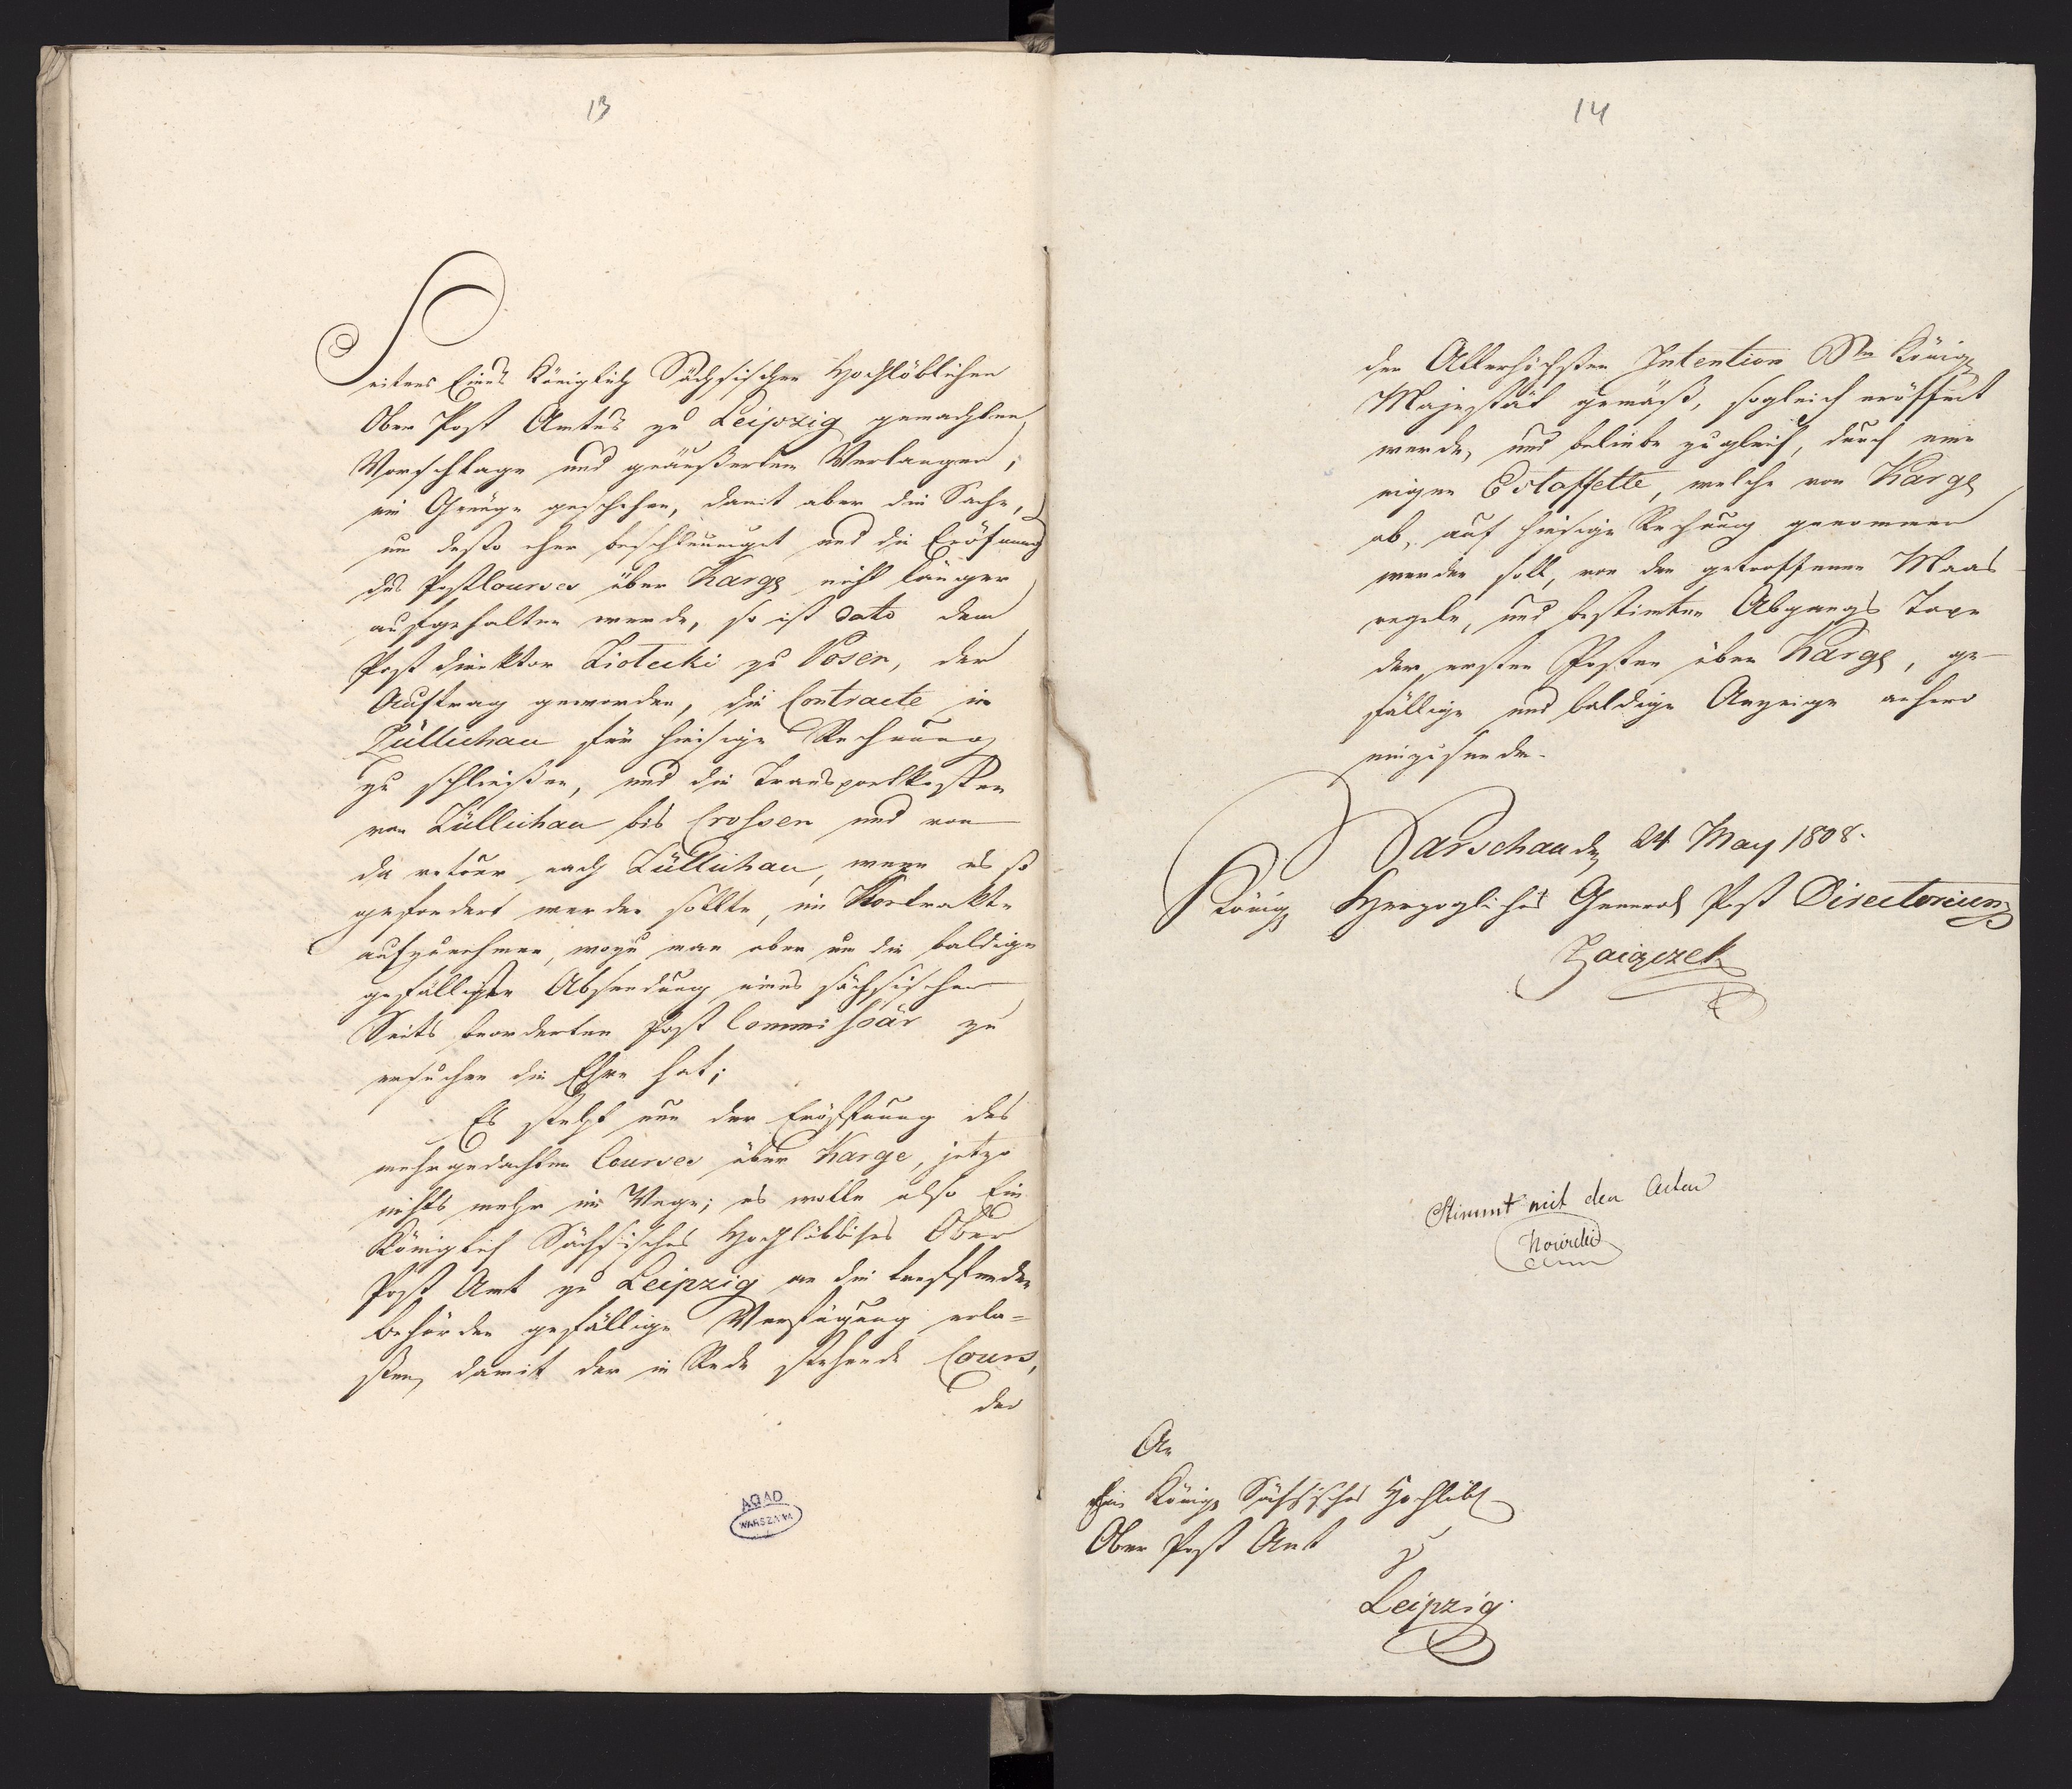 13
Seitens Eines Königlich Sächsischen Hochlöblichen
Ober Post Amtes zu Leipzig gemachten
Vorschlage und geäußerten Verlangen,
ein Genüge geschehen, damit aber die Sache,
um desto eher beschleuniget und die Eröfnung
des Postcourses über Karge nicht länger
aufgehalten werde, so ist dato dem
Post Direktor Ziotecki zu Posen, der
Auftrag geworden, die Contracte in
Züllichau für hiesige Rechnung
zu schließen, und die Transportkosten
von Züllichau bis Crossen und von
da retour nach Züllichau, wenn es so
gefordert werden sollte, im Kontrakte
aufzunehmen, wozu man aber um die baldige
gefälligste Absendung eines sächsischen
Seits beorderten Post Commissär zu
ersuchen die Ehre hat;
Es steht nun der Eröffnung des
mehrgedachten Courses über Karge, jetzo
nichts mehr im Wege; es wolle also Ein
Königlich Sächsisches Hochlöbliches Ober
Post Amt zu Leipzig an die treffenden
Behörden gefällige Verfügung erla=
ßen, damit der in Rede stehende Cours,
der
AGAD
WARSZAWA
14
der Allerhöchsten Intention Sr. Königl
Majestät gemäß, sogleich eröffnet
werde, und beliebe zugleich, durch eine
eigene Estaffette, welche von Karge
ab, auf hiesige Rechnung genommen
werden soll, von den getroffenen Maas
regeln, und bestimten Abgangs Tage
der ersten Posten über Karge, ge
fällige und baldige Anzeige anhero
einzusenden.
Warschau den 24 May 1808.
Königl Herzogliches General Post Directorium
Zaiączek
Stimmt mit den Acten
An
Ein Königl Sächsisches Hochlöbl
Ober Post Amt
zu
Leipzig.